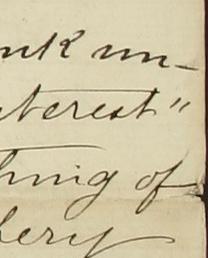 un-
terest"
thing of
bery